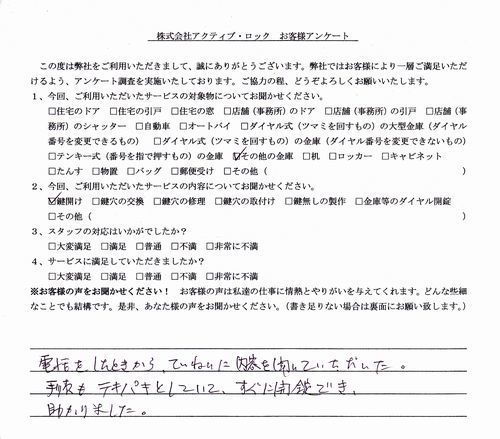 株式会社アクティブ・ロック お客様アンケート
この度は弊社をご利用いただきまして、誠にありがとうございます。弊社ではお客様により一層ご満足いただ
けるよう、アンケート調査を実施いたしております。ご協力の程、どうぞよろしくお願いいたします。
1、今回、ご利用いただいたサービスの対象物についてお聞かせください。
□住宅のドア □住宅の引戸 □住宅の窓 □店舗(事務所)のドア □店舗(事務所)の引戸 □店舗(事
務所)のシャッター □自動車 □オートバイ □ダイヤル式(ツマミを回すもの)の大型金庫(ダイヤル
番号を変更できるもの) □ダイヤル式(ツマミを回すもの)の金庫(ダイヤル番号を変更できないもの)
□テンキー式(番号を指で押すもの)の金庫 ☑その他の金庫 □机 □ロッカー □キャビネット
□たんす □物置 □バッグ □郵便受け □その他( )
2、今回、ご利用いただいたサービスの内容についてお聞かせください。
☑鍵開け □鍵穴の交換 □鍵穴の修理 □鍵穴の取付け □鍵無しの製作 □金庫等のダイヤル開錠
□その他( )
3、スタッフの対応はいかがでしたか?
□大変満足 □満足 □普通 □不満 □非常に不満
4、サービスに満足していただきましたか?
□大変満足 □満足 □普通 □不満 □非常に不満
※お客様の声をお聞かせください! お客様の声は私達の仕事に情熱とやりがいを与えてくれます。どんな些細
なことでも結構です。是非、あなた様の声をお聞かせください。(書き足りない場合は裏面にお願い致します。)
電話をしたときから、ていねいに内容を聞いていただいた。
対応も テキパキとしていて、すぐに開錠でき、
助かりました。